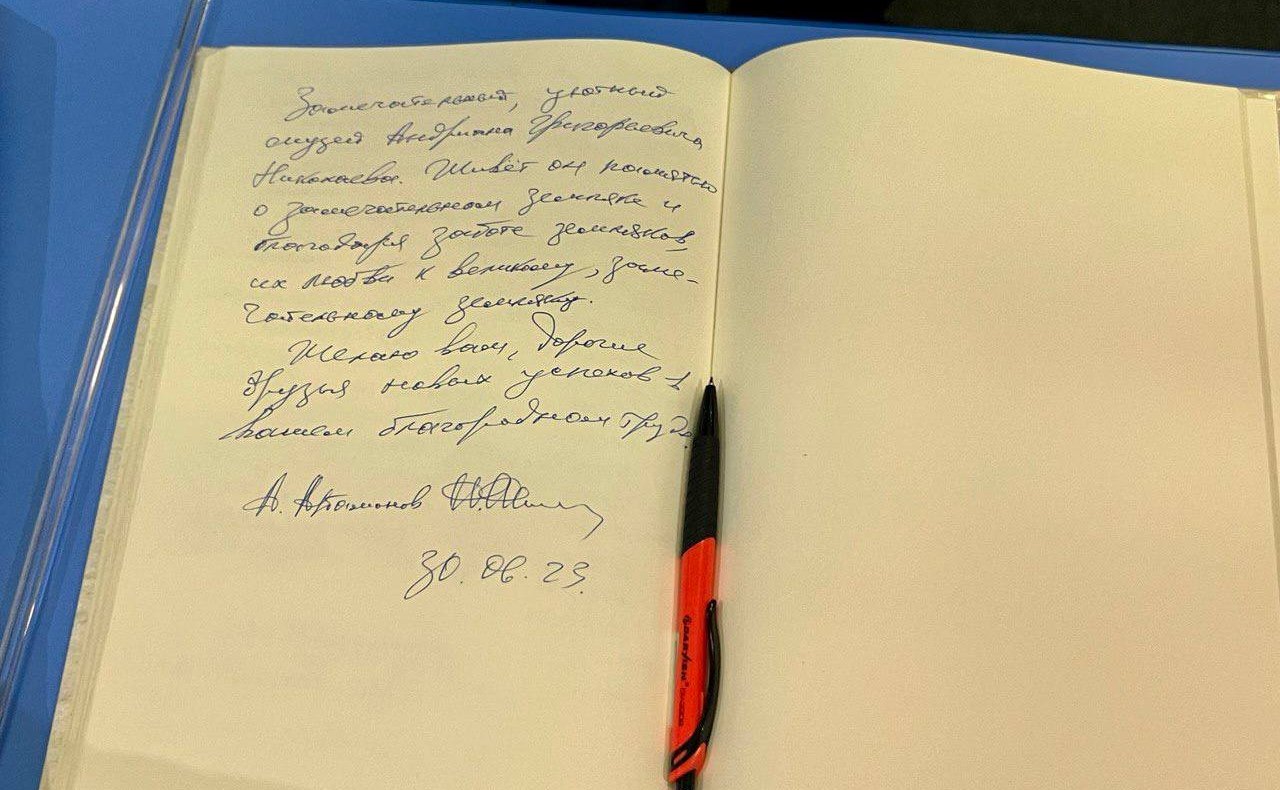 Замечательный, уютный
музей Андрияна Григорьевича
Николаева. Живёт он памятью
о замечательном земляке и
благодаря заботе земляков,
их любви к великому, заме-
чательному земляку.
Желаю вам, дорогие
друзья новых успехов в
вашем благородном труде.
А. Артамонов
30.06.23.